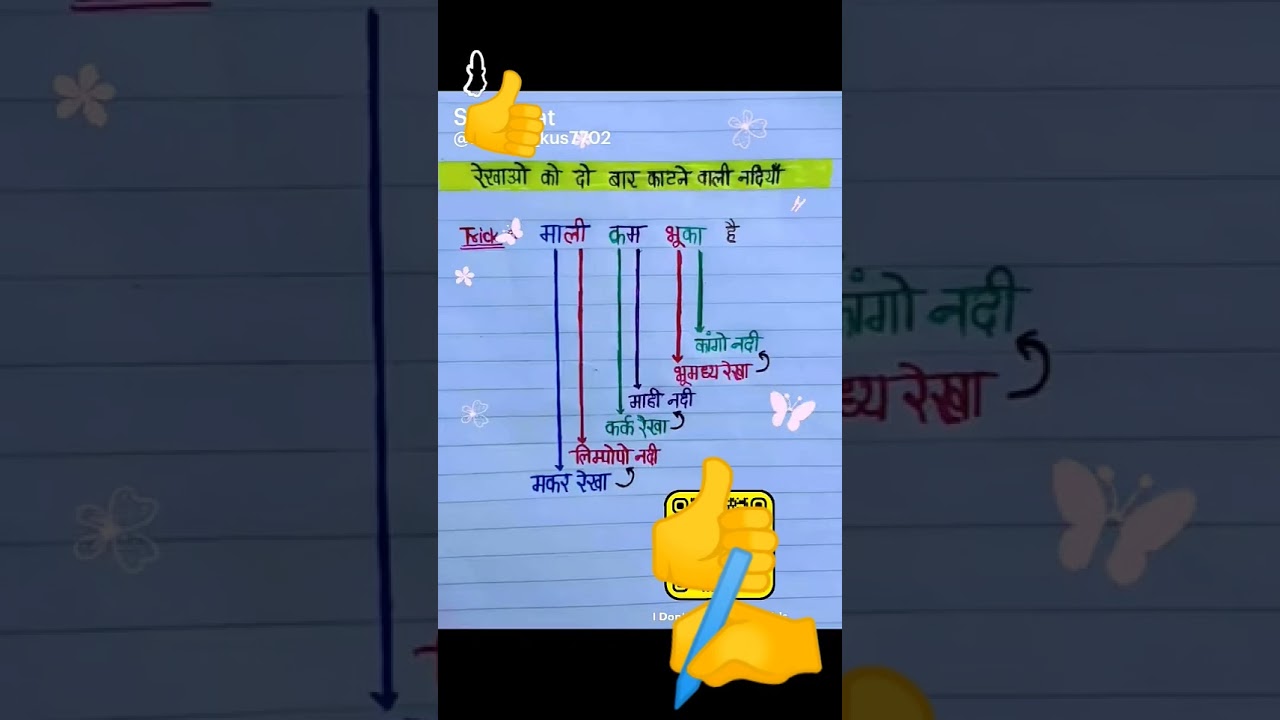 kus7702
रेखाओ को दो बार काटने वाली नदियाँ
Trick माली कम भूका है
कांगो नदी
भूमध्य रेखा
माही नदी
कर्क रेखा
लिम्पोपो नदी
मकर रेखा
I Don